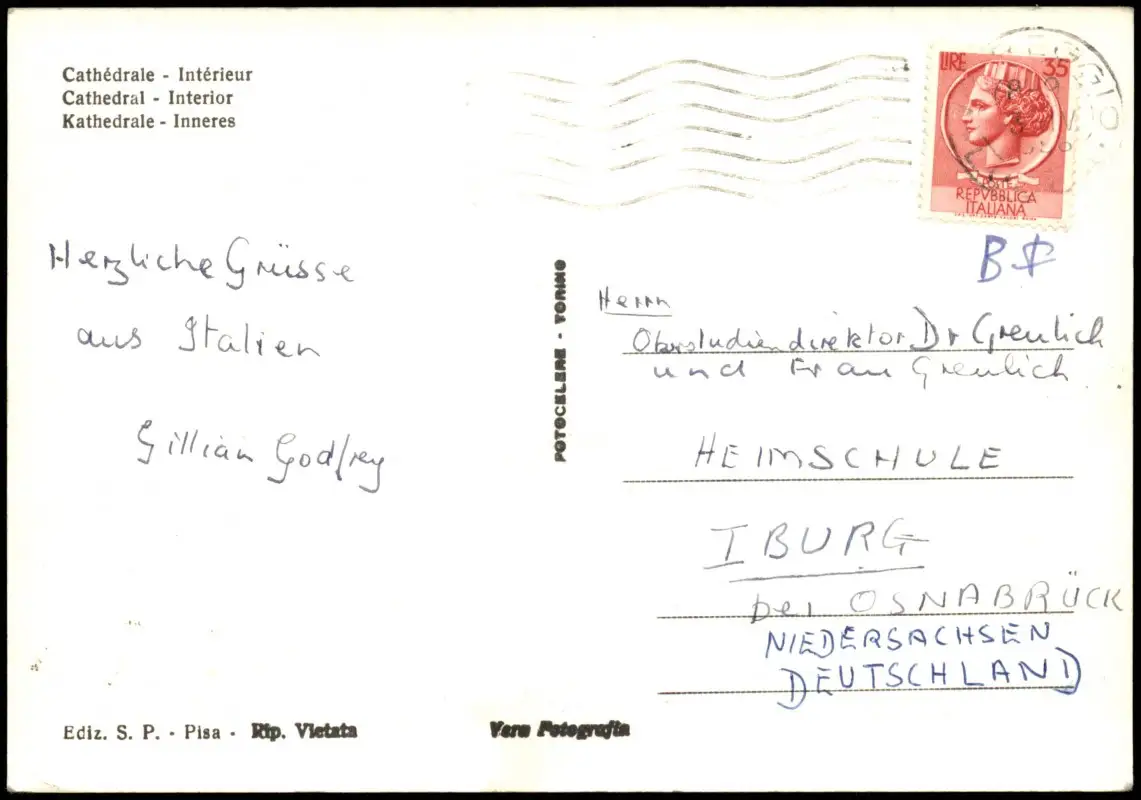 Cathédrale - Intérieur
Cathedral - Interior
Kathedrale - Inneres
LIRE 35
POSTE
REPVBBLICA
ITALIANA
B
Herzliche Grüsse
aus Italien
Gillian Godfrey
FOTOCELERE - TORINO
Herrn
Oberstudiendirektor Dr Greulich
und Frau Greulich
HEIMSCHULE
IBURG
bei OSNABRÜCK
NIEDERSACHSEN
DEUTSCHLAND
Ediz. S. P. - Pisa - Rip. Vietata
Vera Fotografia